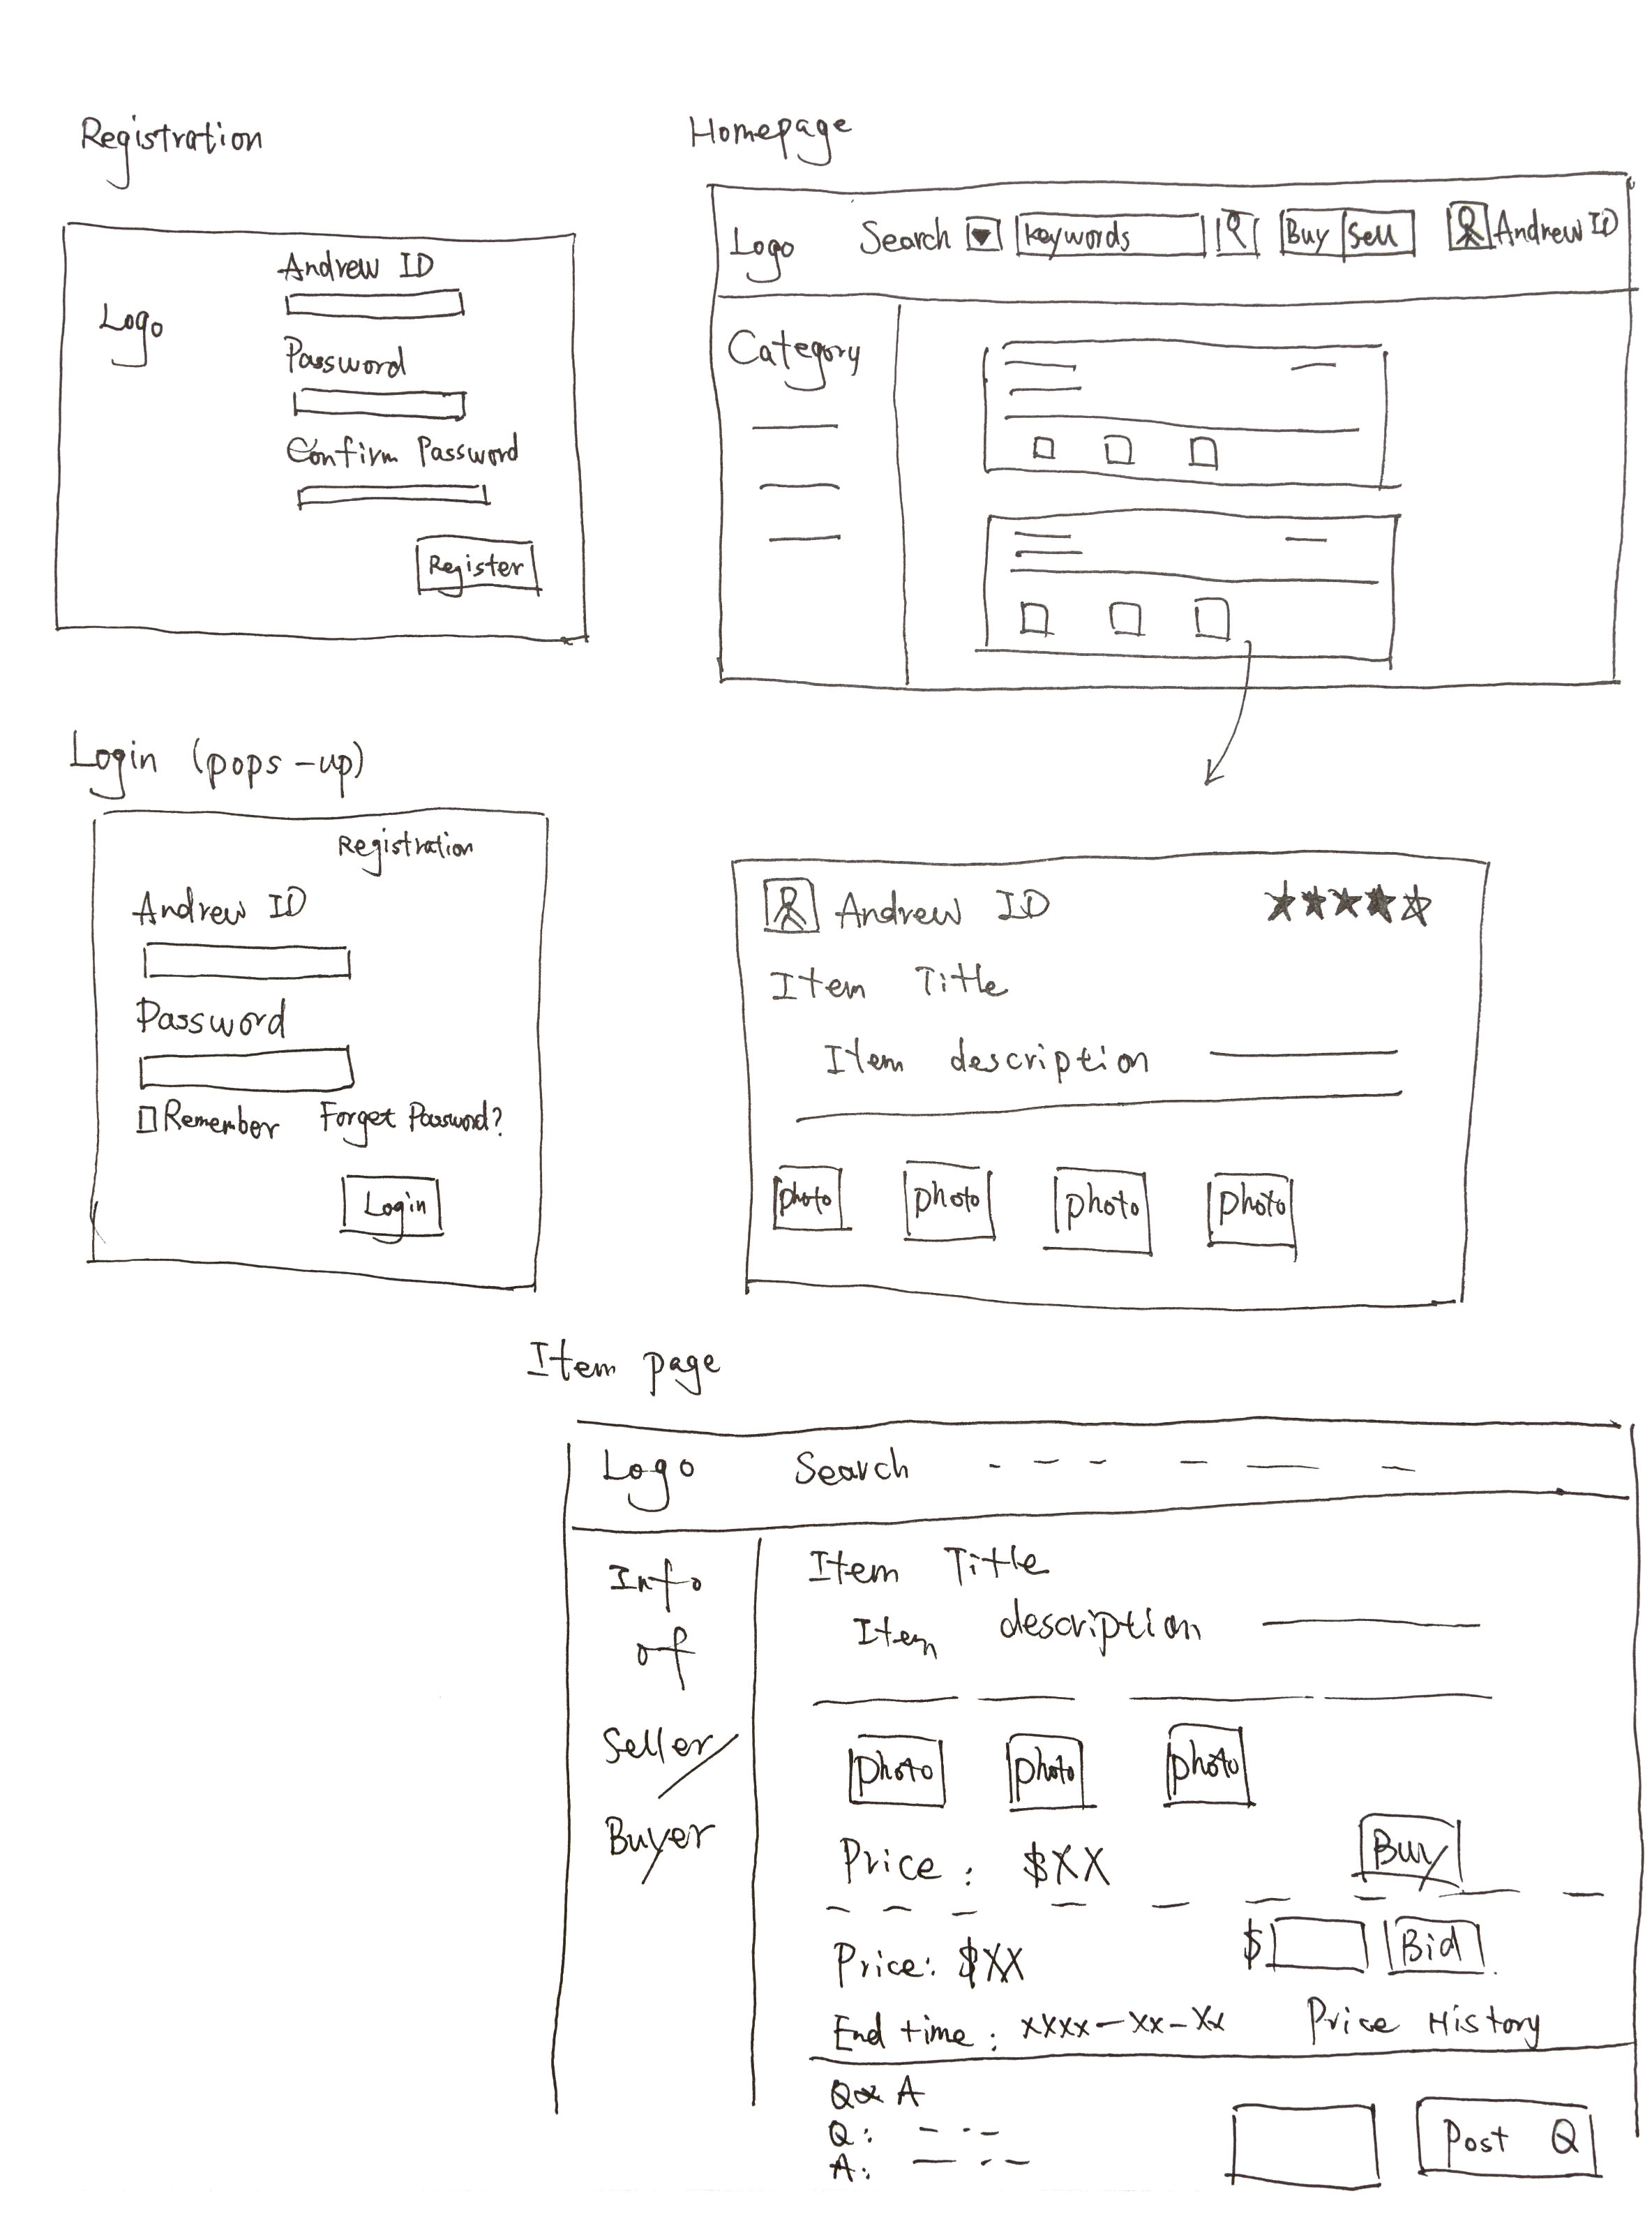 Registration
Logo
Andrew ID
Password
Confirm Password
Register
Homepage
Logo Search keywords Buy Sell Andrew ID
Category
Login (pops-up)
Registration
Andrew ID
Password
Remember Forget Password?
Login
Andrew ID
Item Title
Item description
photo photo photo photo
Item page
Logo Search
Info
of
Seller/
Buyer
Item Title
Item description
photo photo photo
Price: $XX Buy
Price: $XX $ Bid
End time: xxxx-xx-xx Price History
Q & A
Q:
A:
Post Q